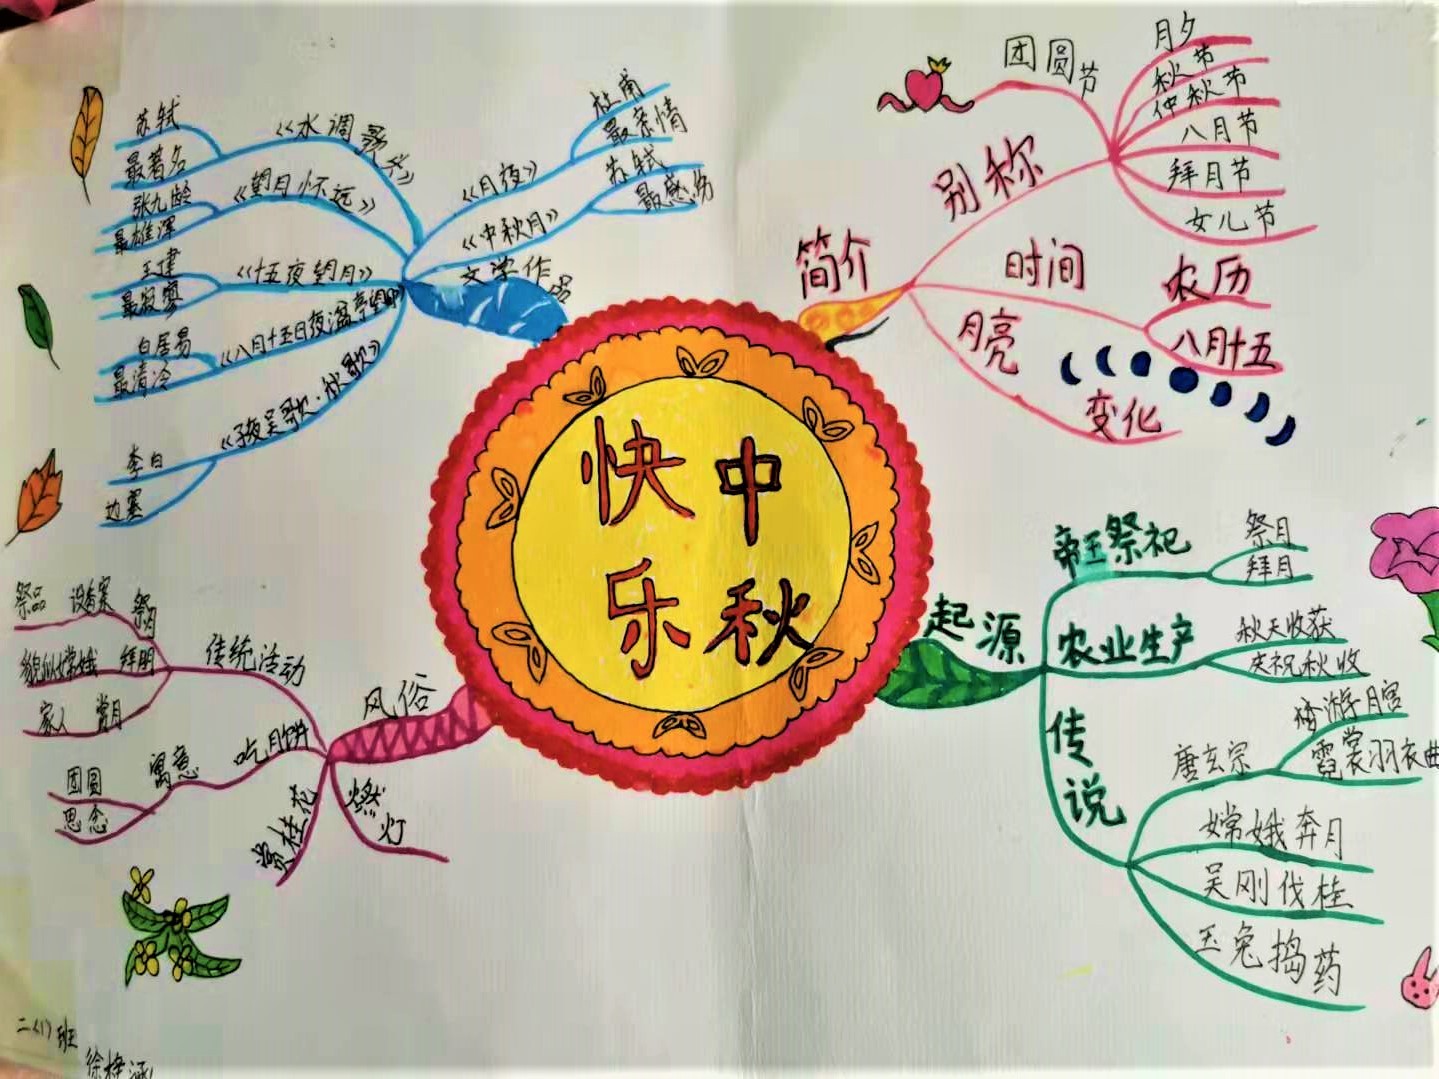 中秋
快乐
简介
别称
团圆节
月夕
秋节
仲秋节
八月节
拜月节
女儿节
时间
农历
八月十五
月亮
变化
起源
帝王祭祀
祭月
拜月
农业生产
秋天收获
庆祝秋收
传说
唐玄宗
梦游月宫
霓裳羽衣曲
嫦娥奔月
吴刚伐桂
玉兔捣药
风俗
传统活动
祭月
设香案
祭品
拜月
貌似嫦娥
赏月
家人
吃月饼
寓意
团圆
思念
赏桂花
燃灯
文学作品
《月夜》
杜甫
最亲情
《中秋月》
苏轼
最感伤
《水调歌头》
苏轼
最著名
《望月怀远》
张九龄
最雄浑
《十五夜望月》
王建
最寂寥
《八月十五日夜湓亭望月》
白居易
最清冷
《子夜吴歌·秋歌》
李白
边塞
二(1)班